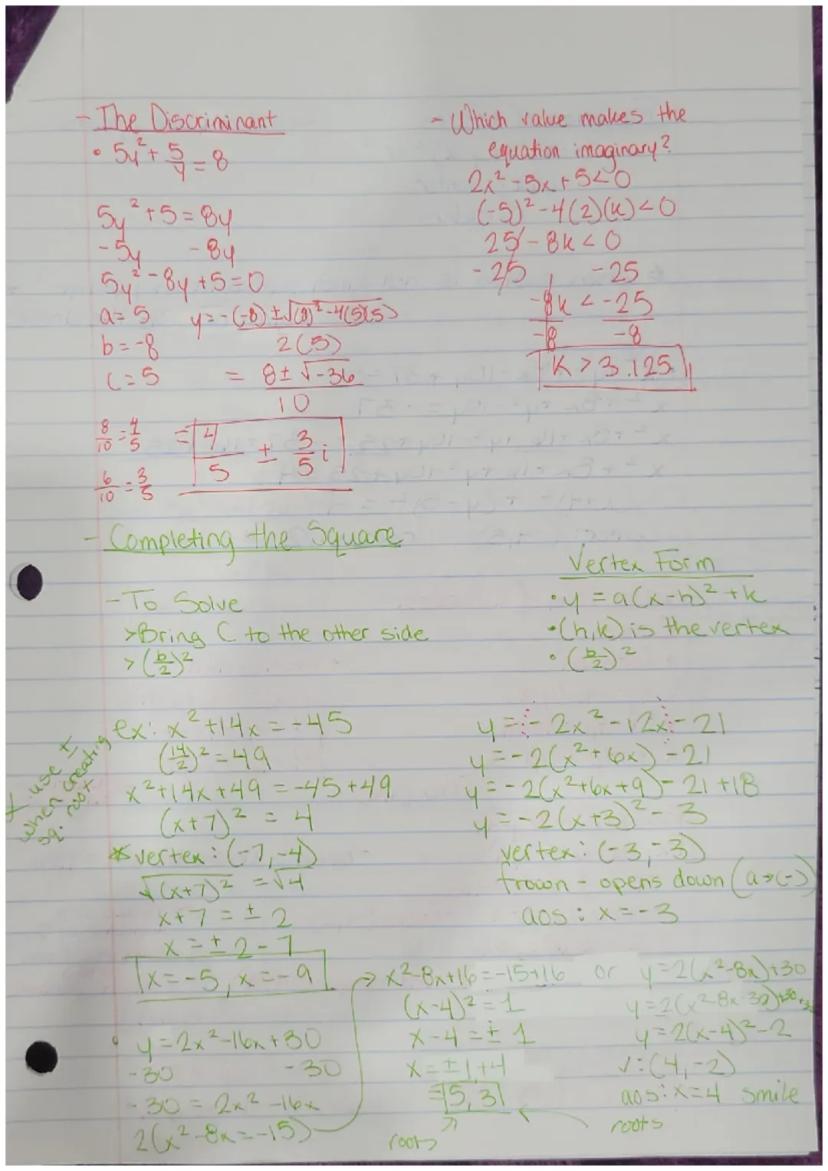 - The Discriminant
• 5y² + 5/y = 8
5y² + 5 = 8y
-5y -8y
5y² - 8y + 5 = 0
a = 5 y = -(-8) ± √(8)² - 4(5)(5)
b = -8 2(5)
c = 5 = 8 ± √-36
10
8/10 = 4/5 = 4/5 ± 3/5 i
6/10 = 3/5
- Which value makes the
equation imaginary?
2x² - 5x + 5 < 0
(-5)² - 4(2)(k) < 0
25 - 8k < 0
-25 -25
-8k < -25
-8 -8
k > 3.125
- Completing the Square
- To Solve
> Bring C to the other side
> (b/2)²
Vertex Form
• y = a(x-h)² + k
• (h,k) is the vertex
• (b/2)²
ex: x² + 14x = -45
(14/2)² = 49
x² + 14x + 49 = -45 + 49
(x+7)² = 4
* vertex: (-7, -4)
√(x+7)² = √4
x + 7 = ± 2
x = ± 2 - 7
x = -5, x = -9
* use ±
when creating
sq. root
y = -2x² - 12x - 21
y = -2(x² + 6x) - 21
y = -2(x² + 6x + 9) - 21 + 18
y = -2(x+3)² - 3
vertex: (-3, -3)
frown - opens down (a → (-)
aos: x = -3
• y = 2x² - 16x + 30
-30 -30
-30 = 2x² - 16x
2(x² - 8x = -15)
→ x² - 8x + 16 = -15 + 16
(x-4)² = 1
x - 4 = ± 1
x = ± 1 + 4
= 5, 3
roots
or y = 2(x² - 8x) + 30
y = 2(x² - 8x - 32) + 30 + 32
y = 2(x-4)² - 2
v: (4, -2)
aos: x = 4 smile
roots